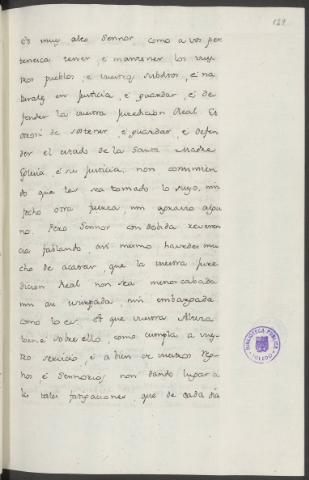 129
es muy alto Sennor como a vos per
tenesca tener, e mantener los vues
tros pueblos, e vuestros subditos, é na
turales en justicia, é guardar, é de
fender la vuestra juredicion Real Es
de sostener, é guardar, e defen
der el estado de la Santa Madre
Iglesia, é su justicia, non consintien
do que les sea tomado lo suyo, nin
fecho otra fuerza, nin agravio algu
no. Pero Sennor con debida reveren
cia fablando, asi mismo havedes mu
cho de acatar, que la vuestra jure
dicion Real non sea menoscabada
nin usurpada, nin embargada
como lo es. A que vuestra Alteza
bien é sobre ello, como cumpla a vues
tro servicio, é a bien de vuestros Reg
nos é Sennorios, non dando lugar a
las tales fatigaciones, que de cada dia
BIBLIOTECA PÚBLICA
TOLEDO